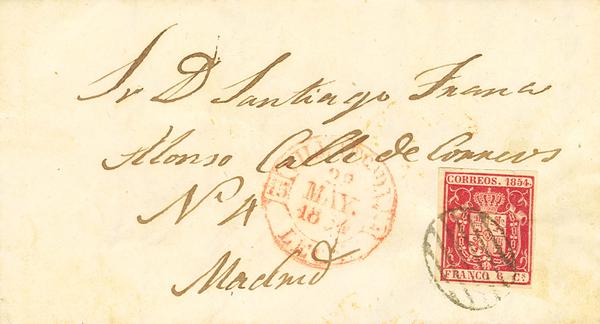 Sr D Santiago Franco
Alonso Calle de Correos
Nº 4
Madrid
22
MAY.
1854
CORREOS. 1854.
FRANCO 6 Cs